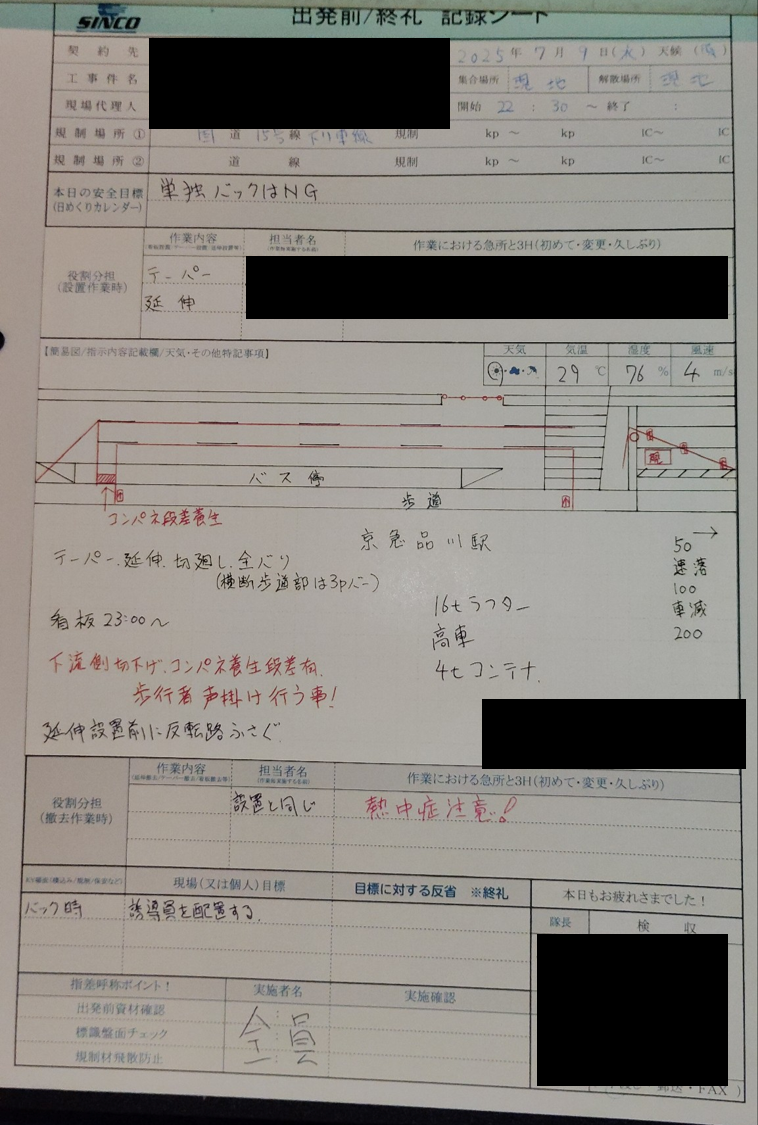 SINCO
出発前/終礼 記録シート
契約先 2025年 7月 9日(水) 天候
工事件名 集合場所 現地 解散場所 現地
現場代理人 開始 22:30 ～ 終了 :
規制場所① 国道 15号線 下り車線 規制 kp ～ kp IC～ IC
規制場所② 道 線 規制 kp ～ kp IC～ IC
本日の安全目標 単独バックはNG
(日めくりカレンダー)
作業内容 担当者名 作業における急所と3H(初めて・変更・久しぶり)
役割分担
(設置作業時)
テーパー
延伸
【簡易図/指示内容記載欄/天気・その他特記事項】
天気 気温 湿度 風速
29℃ 76% 4m/s
バス停
歩道
コンパネ段差養生
京急品川駅
テーパー.延伸.切廻し.全バリ
(横断歩道部は3pバー)
看板 23:00～
16tラフター
高車
4tコンテナ.
50 →
速落
100
車減
200
下流側切下げ.コンパネ養生段差有.
歩行者声掛け行う事!
延伸設置前に反転路ふさぐ.
作業内容 担当者名 作業における急所と3H(初めて・変更・久しぶり)
役割分担
(撤去作業時)
設置と同じ 熱中症注意!
現場(又は個人)目標 目標に対する反省 ※終礼 本日もお疲れさまでした!
バック時 誘導員を配置する.
隊長 検収
指差呼称ポイント! 実施者名 実施確認
出発前資材確認
標識盤面チェック
規制材飛散防止
全員
郵送・FAX)